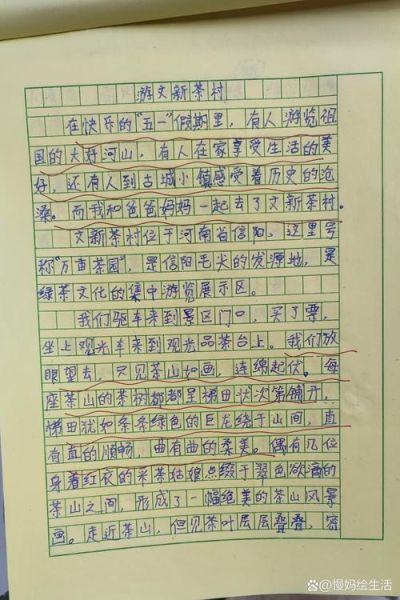 游文新茶村
在快乐的"五一"假期里，有人游览祖
国的大好河山，有人在家享受生活的美
好，还有人到古城小镇感受着历史的沧
桑。而我和爸爸妈妈一起去了文新茶村。
文新茶村位于河南省信阳，这里号
称"万亩茶园"，是信阳毛尖的发源地，是
绿茶文化的集中游览展示区。
我们驱车来到景区门口，买了票，
坐上观光车来到观光品茶台上。我们放
眼望去，只见茶山如画，连绵起伏。每
座茶山的茶树都呈梯田状次第铺开，
梯田犹如条条绿色的巨龙绕于山间，直
有直的顺畅，曲有曲的柔美。偶有几位
身着红衣的采茶姑娘点缀于翠色欲滴的
茶山之间，形成了一幅绝美的茶山风景
画。走近茶山，但见茶叶层层叠叠，密
慢妈绘生活